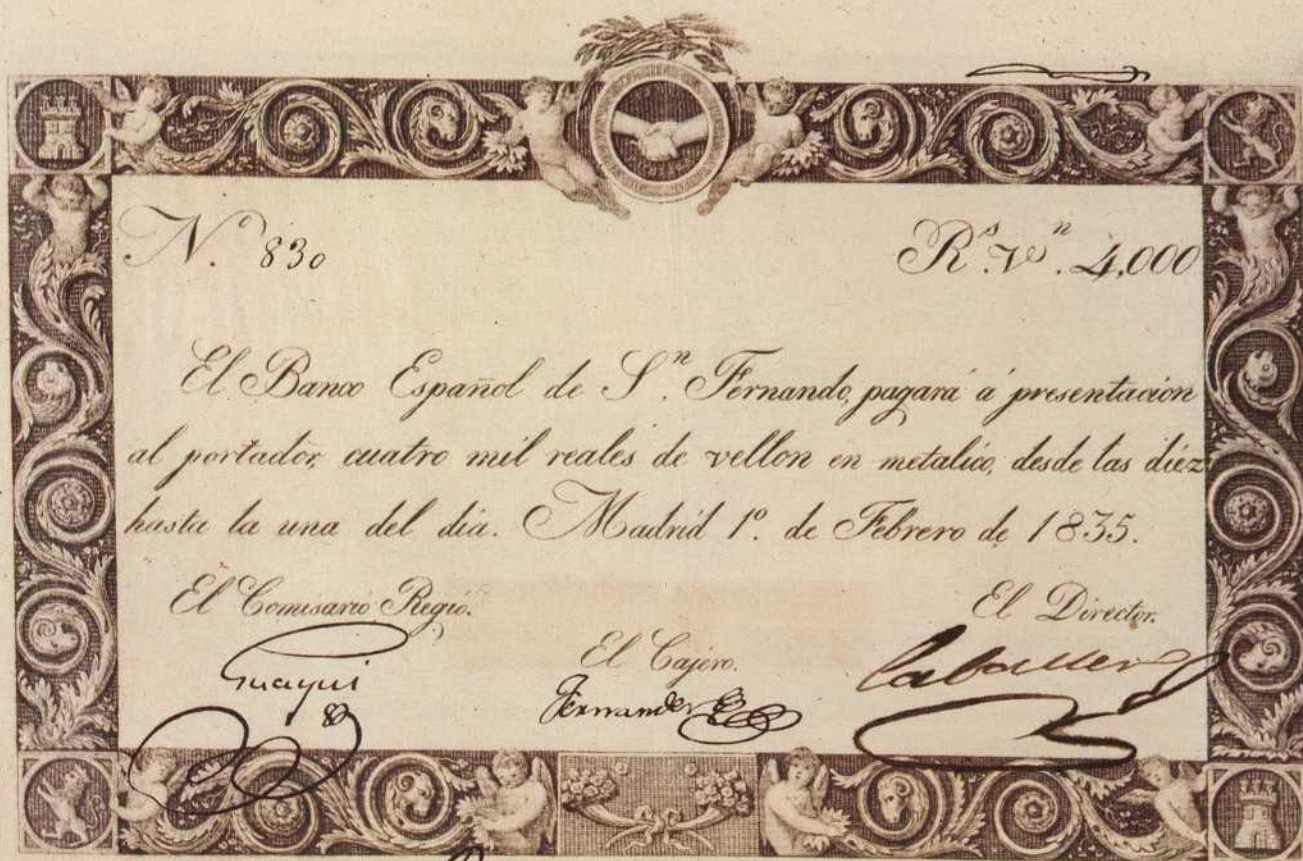 Nº. 830
Rˢ. Vⁿ. 4,000
El Banco Español de Sⁿ. Fernando, pagará á presentacion
al portador, cuatro mil reales de vellon en metalico, desde las diez
hasta la una del dia. Madrid 1º. de Febrero de 1835.
El Comisario Regio.
El Cajero.
El Director.
Guaqui
Fernandez
Caballero